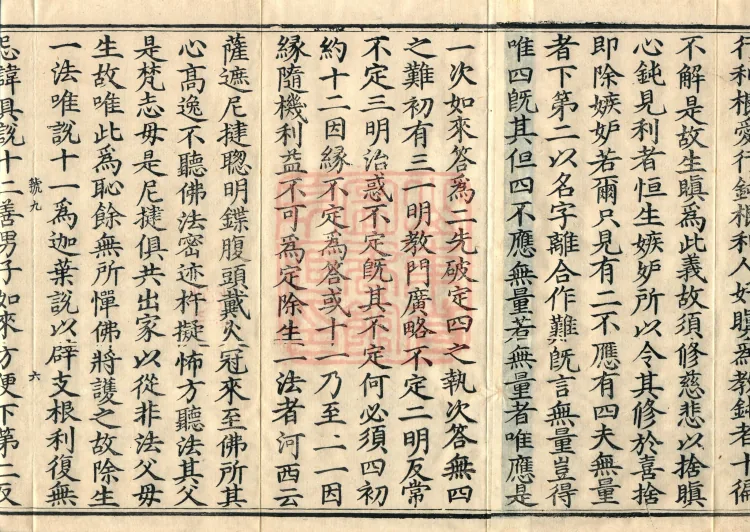 行利根愛行鈍根利人好瞋為教鈍者十徧
不解是故生瞋為此義故須修慈悲以捨瞋
心鈍見利者恒生嫉妒所以令其修於喜捨
即除嫉妒若爾只見有二不應有四夫無量
者下第二以名字離合作難旣言無量豈得
唯四旣其但四不應無量若無量者唯應是
一次如來答為二先破定四之執次答無四
之難初有三一明教門廣略不定二明反常
不定三明治惑不定旣其不定何必須四初
約十二因緣不定為答或十一乃至二一因
緣隨機利益不可為定除生一法者河西云
薩遮尼揵聦明鍱腹頭戴火冠來至佛所其
心高逸不聽佛法密迹杵擬怖方聽法其父
是梵志毋是尼揵俱共出家以從非法父毋
生故唯此為恥餘無所憚佛將護之故除生
一法唯說十一為迦葉說以辟支根利復無
號九
六
忌諱具說十二善男子如來方便下第二反